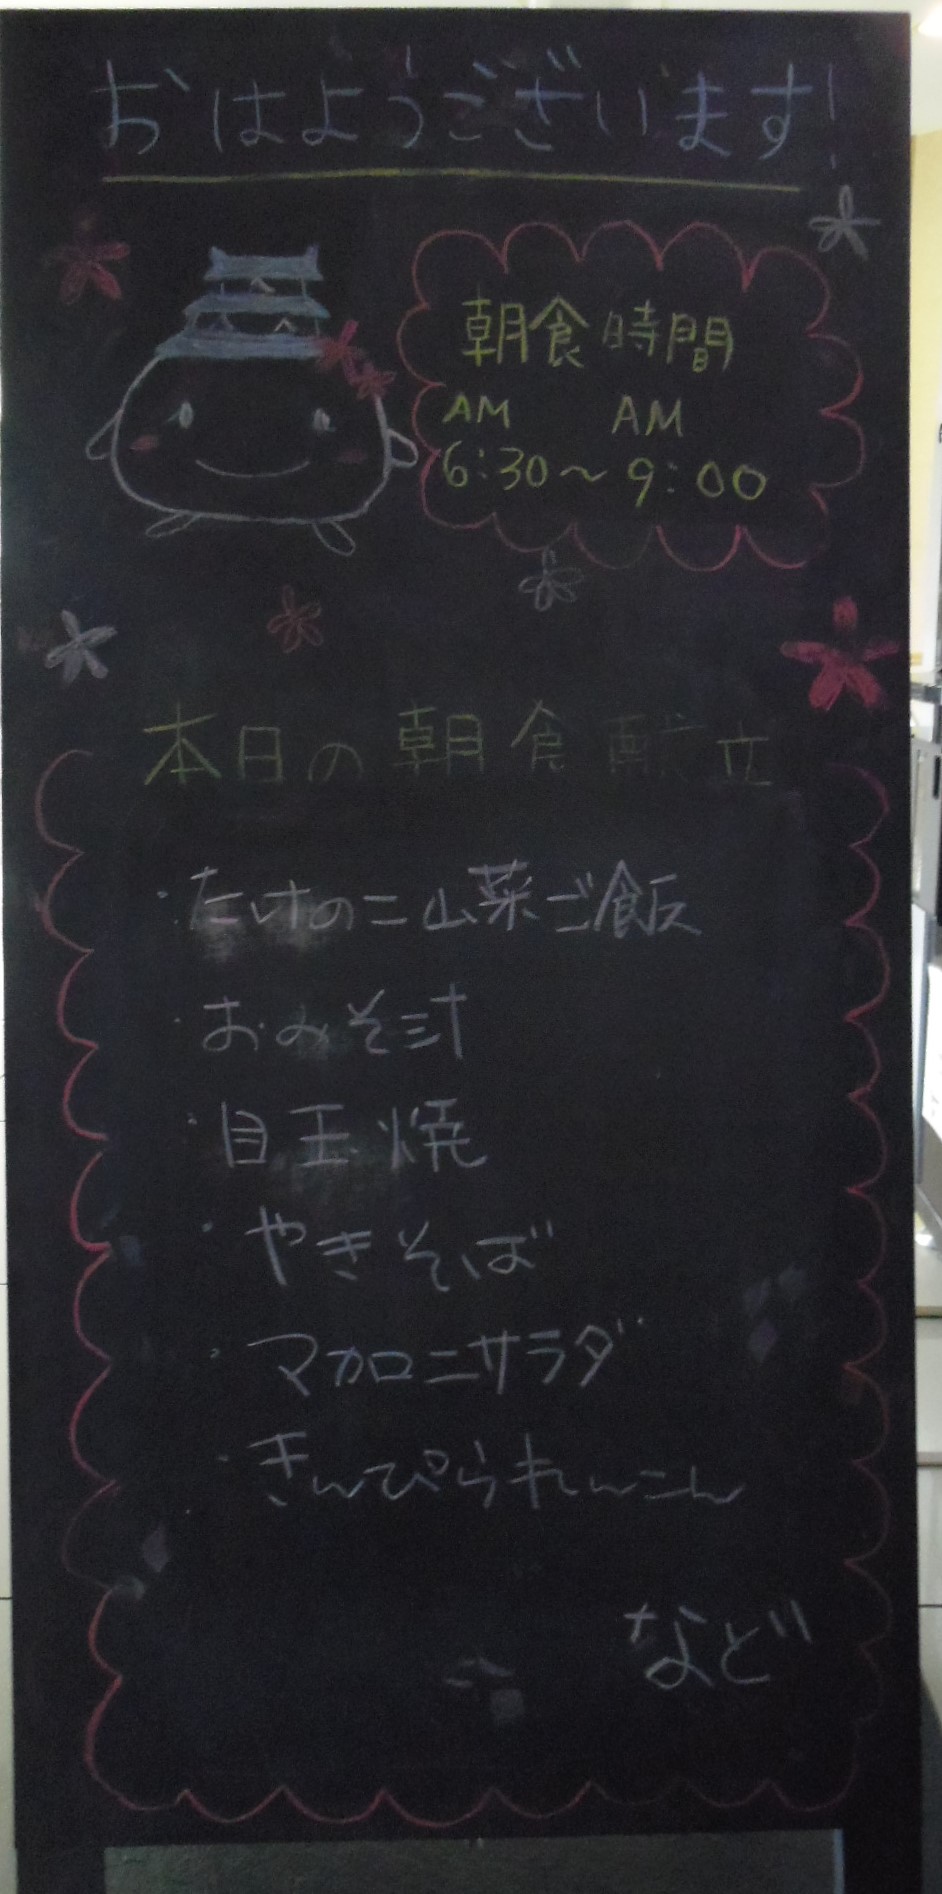 おはようございます!
朝食時間
AM AM
6:30〜9:00
本日の朝食献立
・たけのこ山菜ご飯
・おみそ汁
・目玉焼
・やきそば
・マカロニサラダ
・きんぴられんこん
など